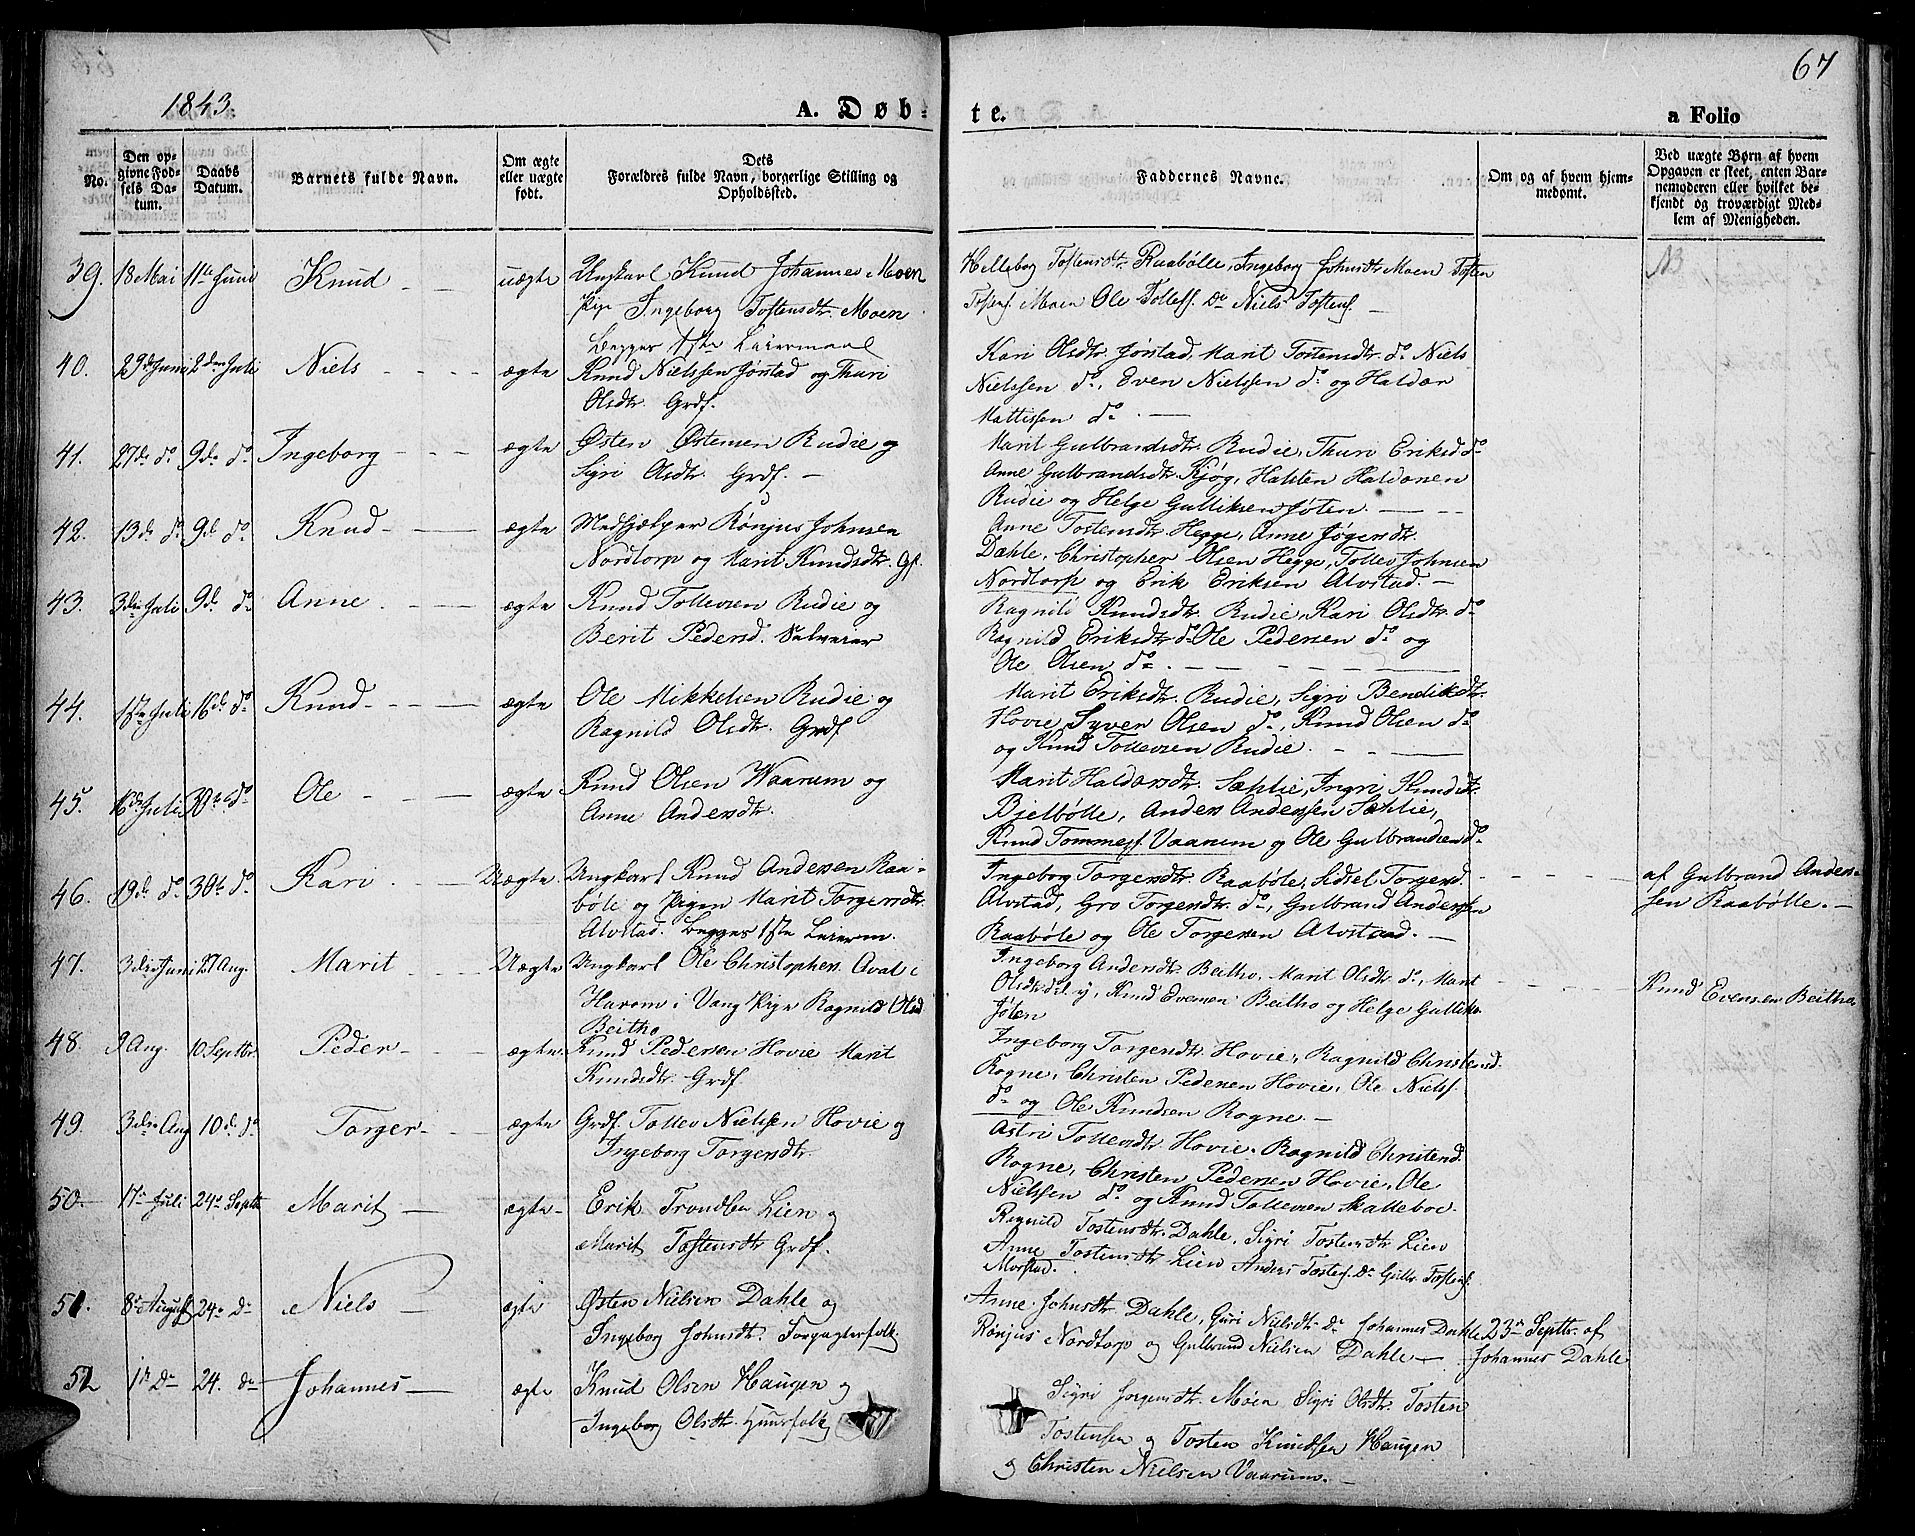 1843.
A. Døb-
te.
67
a Folio
No.
Den op-
givne Fød-
sels Da-
tum.
Daabs
Datum.
Barnets fulde Navn.
Om ægte
eller uægte
født.
Dets
Forældres fulde Navn, borgerlige Stilling og
Opholdssted.
Faddernes Navne.
Om og af hvem hjem-
medømt.
Ved uægte Børn af hvem
Opgaven er skeet, enten Bar-
nemoderen eller hvilket be-
kjendt og troværdigt Med-
lem af Menigheden.
39. 18 Mai 11te Juni Knud uægte Ungkarl Knud Johannes Moen
Pige Ingeborg Tostensdtr. Moen
Begges 1ste Leiermaal
Helleborg Tostensdtr. Raabølle, Ingeborg Johnsdtr Moen Tosten
Tostens. Moen Ole Tollefs. Do Niels Tostens.
NB
40. 23de Juni 2den Juli Niels ægte Knud Nielssen Jørstad og Thuri
Olsdtr. Grdf.
Kari Olsdtr. Jørstad. Marit Tostensdtr. do Niels
Nielssen do, Even Nielssen do og Haldor
Mattissen do
41. 27de do 9de do Ingeborg ægte Østen Østensen Rudie og
Sigri Olsdtr. Grdf.
Marit Gulbrandsdtr. Rudie, Thuri Eriksd do
Anne Gulbrandsdtr. Kjøg, Halsten Haldorsen
Rudie og Helge Gulliksen Jøten.
42. 13de do 9de do Knud ægte Medhjælper Rønjus Johnsen
Nordtorp og Marit Knudsdtr. Gf.
Anne Tostensdtr. Hegge, Anne Jøgersdtr.
Dahle, Christopher Olsen Hegge, Tollev Johnsen
Nordtorp og Erik Eriksen Alvstad.
43. 3die Juli 9de do Anne ægte Knud Tollevsen Rudie og
Berit Pedersd. Selveier
Ragnild Knudsdtr. Rudie, Kari Olsdtr. do
Ragnild Eriksdtr. do Ole Pedersen do og
Ole Olsen do
44. 1ste Juli 16de do Knud ægte Ole Mikkelsen Rudie og
Ragnild Olsdtr. Grdf
Marit Eriksdtr. Rudie, Sigri Bendiksdtr.
Hovie, Syver Olsen do, Knud Olsen do
og Knud Tollevsen Rudie.
45. 16de Juli 30te do Ole ægte Knud Olsen Waarum og
Anne Andersdtr.
Marit Haldorsdtr. Sæhlie, Ingri Knudsdtr
Bjelbølle, Anders Andersen Sæhlie,
Knud Tommess. Vaarum og Ole Gulbrandsen do
46. 19de do 30te do Kari Uægte Ungkarl Knud Andersen Raa-
bøle og Pigen Marit Torgersdtr.
Alvstad. Begges 1ste Leierm.
Ingeborg Torgersdtr. Raabøle, Sidsel Torgersd.
Alvstad, Gro Torgersdtr. do, Gulbrand Anderssen
Raabøle og Ole Torgersen Alvstad.
af Gulbrand Ander-
sen Raabølle.
47. 3die Juni 27 Aug. Marit Uægte Ungkarl Ole Christophers. Aval i
Harom i Vang Pige Ragnild Olsd
Beitho
Ingeborg Andersdtr. Beitho, Marit Olsdtr. do, Marit
Olsdtr. do y, Knud Evensen Beitho og Helge Gulliks.
Jøten
Knud Evensen Beitho
48. 9 Aug. 10 Septbr. Peder ægte Knud Pedersen Hovie Marit
Knudsdtr. Grdf
Ingeborg Torgersdtr. Hovie, Ragnild Christensd.
Rogne, Christen Pedersen Hovie, Ole Nielss.
do og Ole Knudsen Rogne.
49. 3die Aug 10de do Torger ægte Grdf. Tollev Nielssen Hovie og
Ingeborg Torgersdtr.
Astri Tollevsdtr. Hovie, Ragnild Christensd.
Rogne, Christen Pedersen Hovie, Ole
Nielssen do og Knud Tollevsen Skatteboe
50. 17de Juli 24de Septbr Marit ægte Erik Trondsen Lien og
Marit Tostensdtr Grdf.
Ragnild Tostensdtr. Dahle, Sigri Tostensdtr Lien
Anne Tostensdtr Lien Anders Tostens. Do Gulbr. Tostens.
Morstad.
51. 8de August 24de Do Niels ægte Østen Nielsen Dahle og
Ingeborg Johnsdtr. Forpagterfolk
Anne Johnsdtr. Dahle, Guri Nielsdtr. Do Johannes Dahle
Rønjus Nordtorp og Gulbrand Nielsen Dahle
23de Septbr. af
Johannes Dahle
52 1de Do 24. do Johannes ægte Knud Olsen Haugen og
Ingeborg Olsdtr. Huusfolk
Sigri Jorgensdtr. Moen Sigri Olsdtr. Tosten
Tostensen og Tosten Knudsen Haugen
og Christen Nielsen Vaarum.